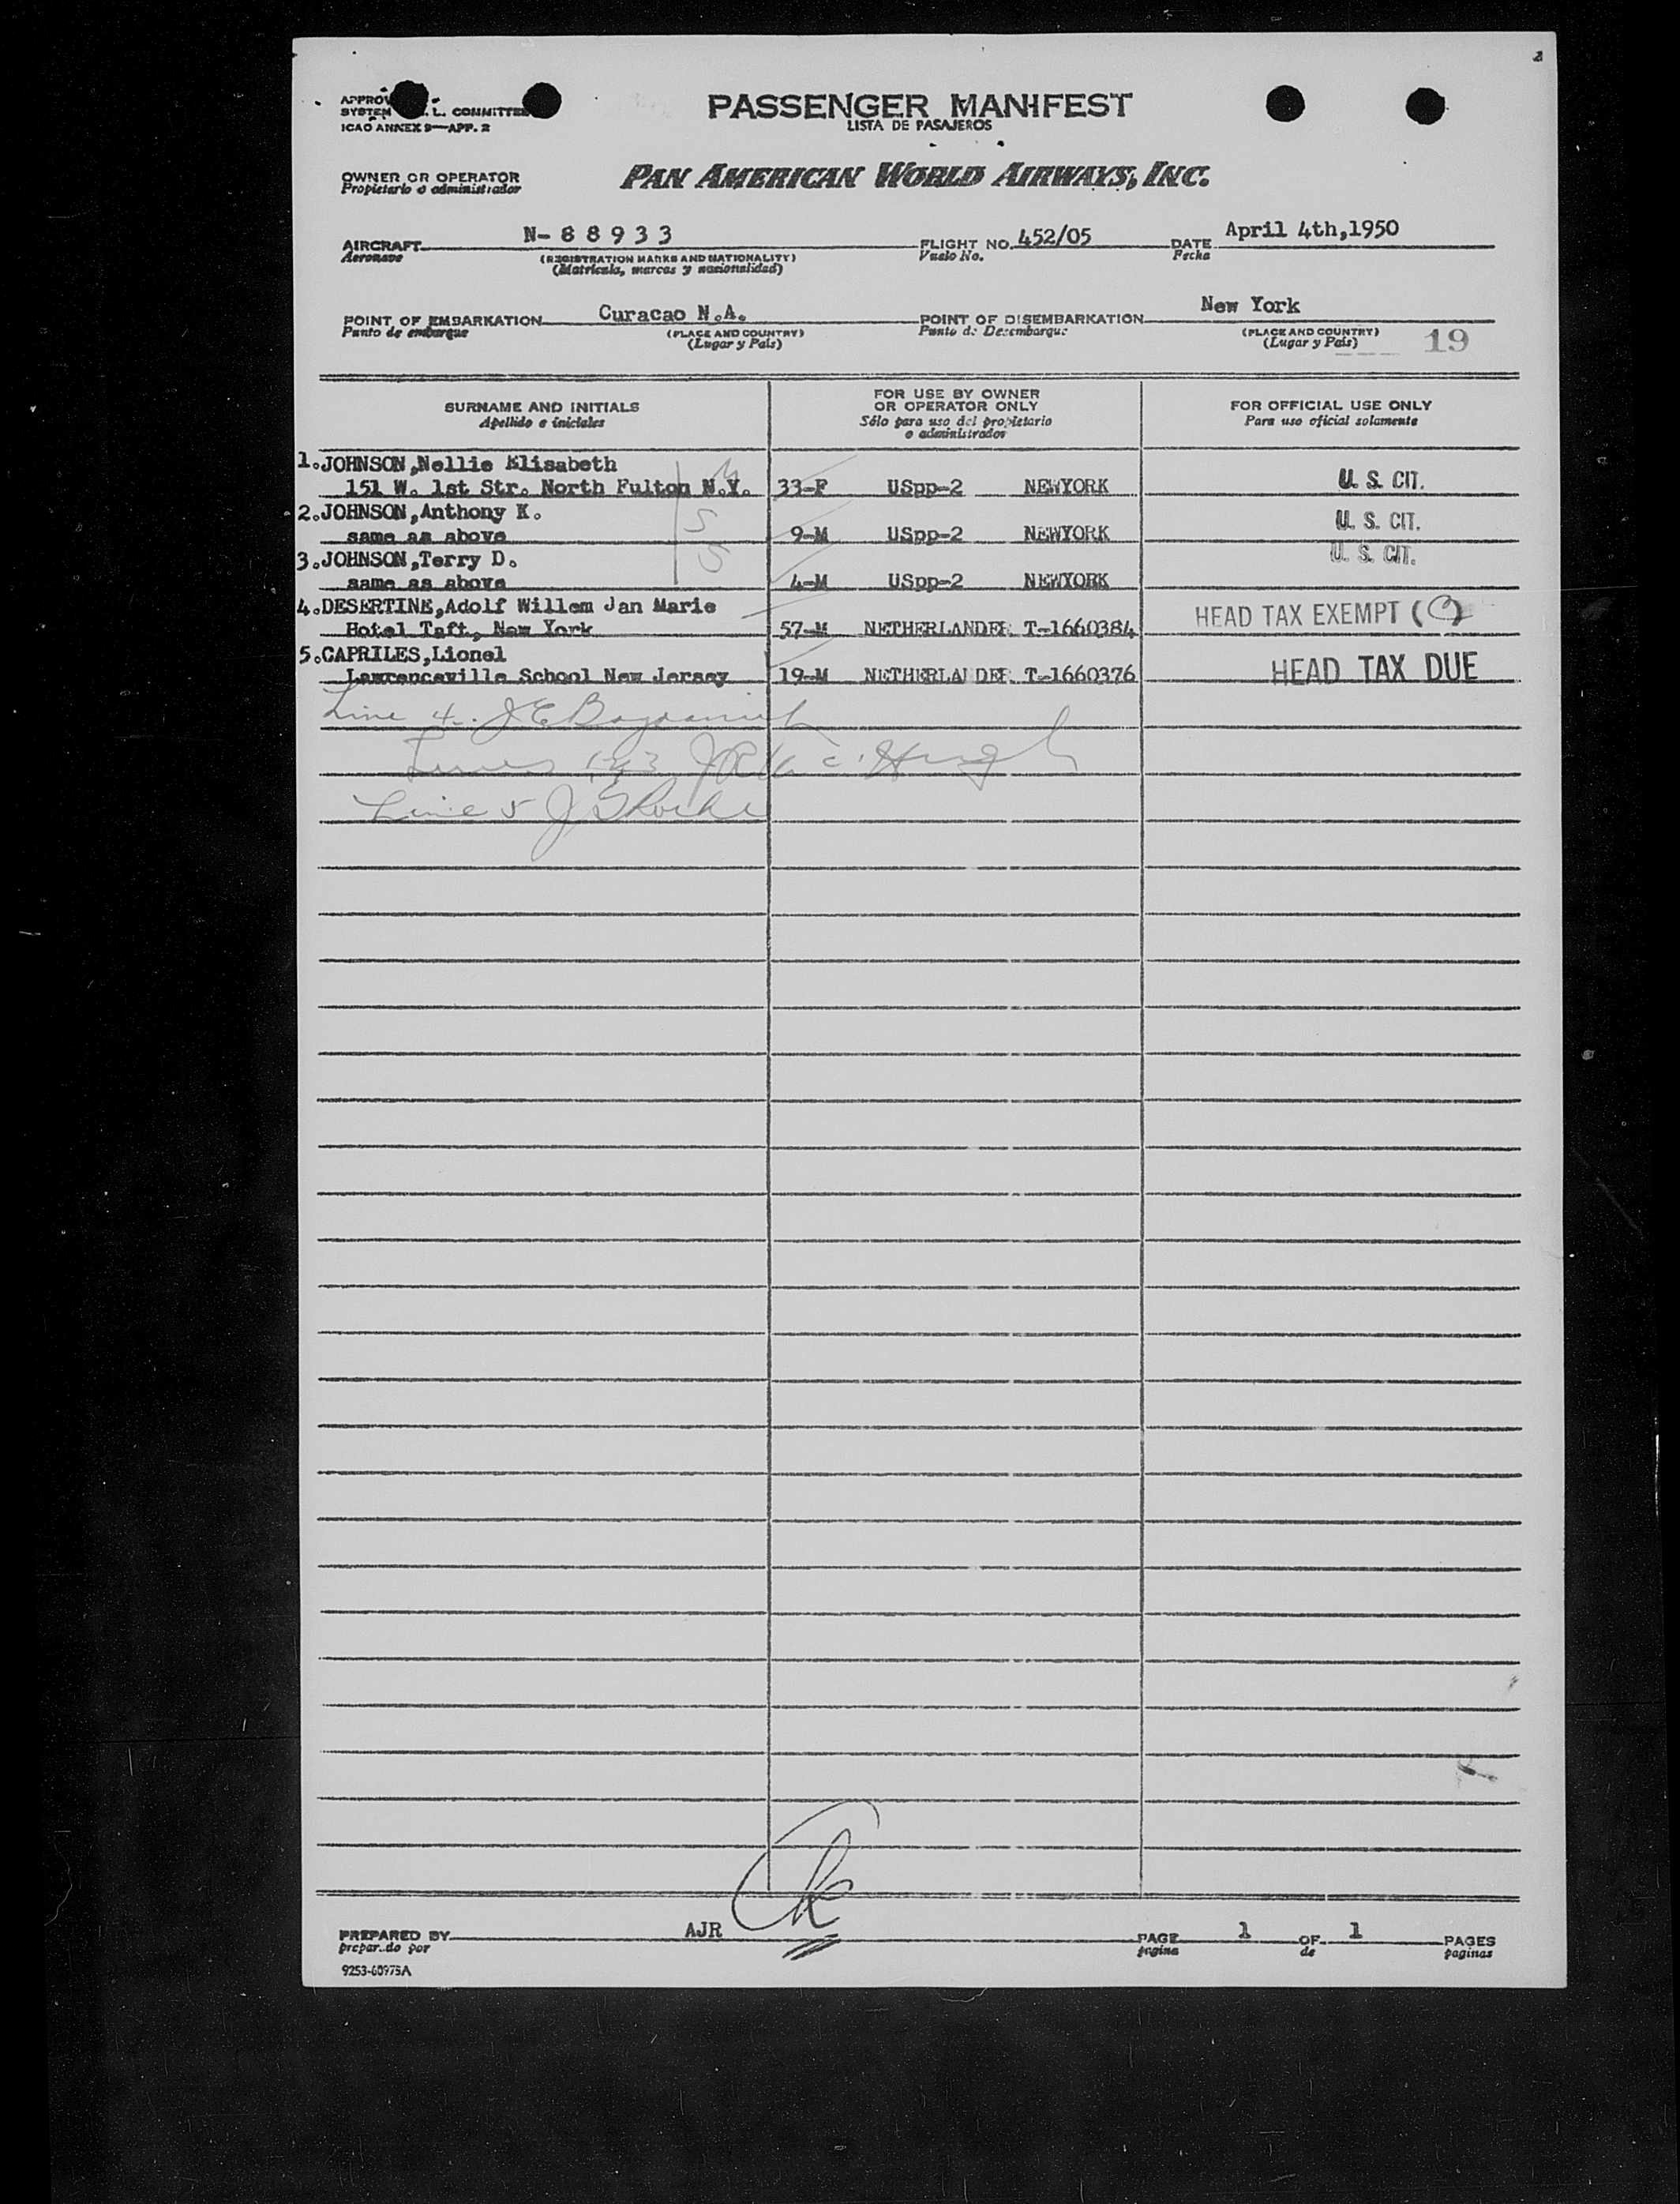 APPROV
SYSTEM . L. COMMITTEE
ICAO ANNEX 9—APP. 2
PASSENGER MANIFEST
LISTA DE PASAJEROS
OWNER OR OPERATOR
Propietario o administrador
PAN AMERICAN WORLD AIRWAYS, INC.
AIRCRAFT N- 8 8 9 3 3 FLIGHT NO. 452/05 DATE April 4th,1950
Aeronave (REGISTRATION MARKS AND NATIONALITY) Vuelo No. Fecha
(Matricula, marcas y nacionalidad)
POINT OF EMBARKATION Curacao N.A. POINT OF DISEMBARKATION New York
Punto de embarque (PLACE AND COUNTRY) Punto de Desembarque (PLACE AND COUNTRY)
(Lugar y País) (Lugar y País) 19
SURNAME AND INITIALS FOR USE BY OWNER OR OPERATOR ONLY FOR OFFICIAL USE ONLY
Apellido e iniciales Sólo para uso del propietario o administrador Para uso oficial solamente
1.JOHNSON,Nellie Elisabeth
151 W. 1st Str. North Fulton N.Y. 33-F USpp-2 NEWYORK U. S. CIT.
2.JOHNSON,Anthony K.
same as above 9-M USpp-2 NEWYORK U. S. CIT.
3.JOHNSON,Terry D.
same as above 4-M USpp-2 NEWYORK U. S. CIT.
4.DESERTINE,Adolf Willem Jan Marie
Hotel Taft, New York 57-M NETHERLANDER T-1660384 HEAD TAX EXEMPT (C)
5.CAPRILES,Lionel
Lawrenceville School New Jersey 19-M NETHERLANDER T-1660376 HEAD TAX DUE
Line 4
Lines
Line 5
PREPARED BY AJR PAGE 1 OF 1 PAGES
preparado por pagina de paginas
9253-60975A